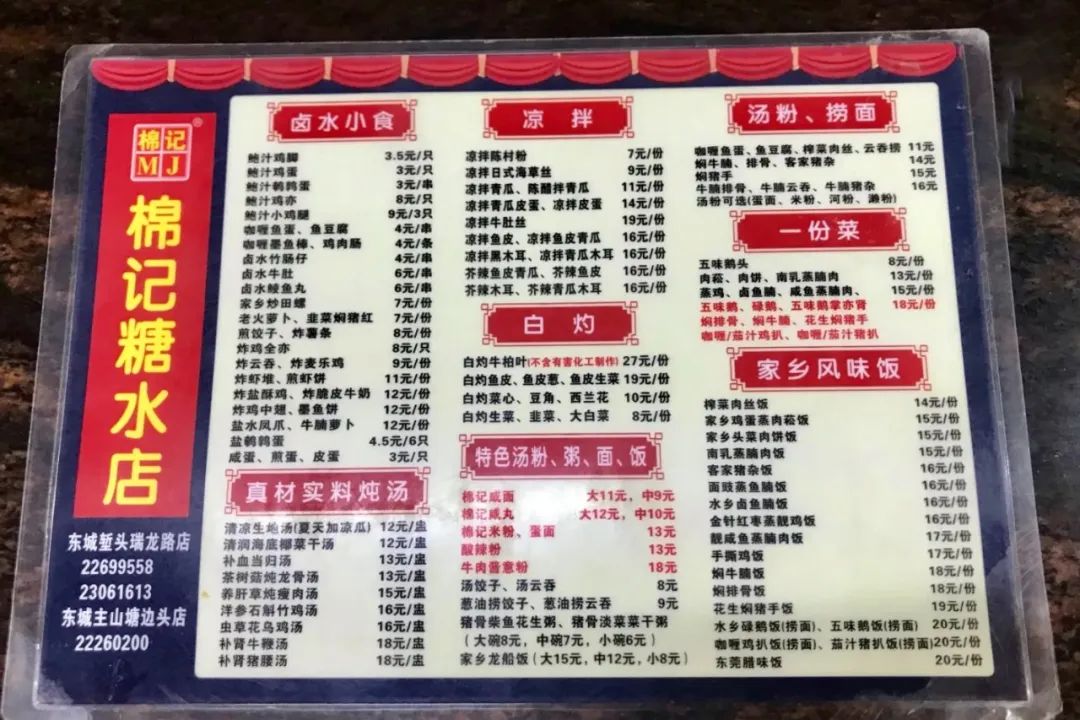 棉记®
MJ
棉记糖水店
东城堑头瑞龙路店
22699558
23061613
东城主山塘边头店
22260200
卤水小食
鲍汁鸡脚 3.5元/只
鲍汁鸡蛋 3元/只
鲍汁鹌鹑蛋 3元/串
鲍汁鸡亦 8元/只
鲍汁小鸡腿 9元/3只
咖喱鱼蛋、鱼豆腐 4元/串
咖喱墨鱼棒、鸡肉肠 4元/条
卤水竹肠仔 4元/串
卤水牛肚 6元/串
卤水鲮鱼丸 6元/串
家乡炒田螺 7元/份
老火萝卜、韭菜焖猪红 7元/份
煎饺子、炸薯条 8元/份
炸鸡全亦 8元/只
炸云吞、炸麦乐鸡 9元/份
炸虾堆、煎虾饼 11元/份
炸盐酥鸡、炸脆皮牛奶 12元/份
炸鸡中翅、墨鱼饼 12元/份
盐水凤爪、牛腩萝卜 12元/份
盐鹌鹑蛋 4.5元/6只
咸蛋、煎蛋、皮蛋 3元/只
真材实料炖汤
清凉生地汤(夏天加凉瓜) 12元/盅
清润海底椰菜干汤 12元/盅
补血当归汤 13元/盅
茶树菇炖龙骨汤 13元/盅
养肝草炖瘦肉汤 15元/盅
洋参石斛竹鸡汤 16元/盅
虫草花乌鸡汤 16元/盅
补肾牛鞭汤 18元/盅
补肾猪腰汤 18元/盅
凉 拌
凉拌陈村粉 7元/份
凉拌日式海草丝 9元/份
凉拌青瓜、陈醋拌青瓜 11元/份
凉拌青瓜皮蛋、凉拌皮蛋 14元/份
凉拌牛肚丝 19元/份
凉拌鱼皮、凉拌鱼皮青瓜 16元/份
凉拌黑木耳、凉拌青瓜木耳 16元/份
芥辣鱼皮青瓜、芥辣鱼皮 16元/份
芥辣木耳、芥辣青瓜木耳 16元/份
白 灼
白灼牛柏叶(不含有害化工制作) 27元/份
白灼鱼皮、鱼皮葱、鱼皮生菜 19元/份
白灼菜心、豆角、西兰花 10元/份
白灼生菜、韭菜、大白菜 8元/份
特色汤粉、粥、面、饭
棉记咸面 大11元，中9元
棉记咸丸 大12元，中10元
棉记米粉、蛋面 13元
酸辣粉 13元
牛肉酱意粉 18元
汤饺子、汤云吞 8元
葱油捞饺子、葱油捞云吞 9元
猪骨柴鱼花生粥、猪骨淡菜菜干粥
（大碗8元，中碗7元，小碗6元）
家乡龙船饭（大15元，中12元，小8元）
汤粉、捞面
咖喱鱼蛋、鱼豆腐、榨菜肉丝、云吞捞 11元
焖牛腩、排骨、客家猪杂 14元
焖猪手 15元
牛腩排骨、牛腩云吞、牛腩猪杂 16元
汤粉可选(蛋面、米粉、河粉、濑粉)
一份菜
五味鹅头 8元/份
肉菘、肉饼、南乳蒸腩肉 13元/份
蒸鸡、卤鱼腩、咸鱼蒸腩肉、 15元/份
五味鹅、碌鹅、五味鹅掌亦肾 18元/份
焖排骨、焖牛腩、花生焖猪手
咖喱/茄汁鸡扒、咖喱/茄汁猪扒
家乡风味饭
榨菜肉丝饭 14元/份
家乡鸡蛋蒸肉菘饭 15元/份
家乡头菜肉饼饭 15元/份
南乳蒸腩肉饭 15元/份
客家猪杂饭 16元/份
面豉蒸鱼腩饭 16元/份
水乡卤鱼腩饭 16元/份
金针红枣蒸靓鸡饭 16元/份
靓咸鱼蒸腩肉饭 17元/份
手撕鸡饭 17元/份
焖牛腩饭 18元/份
焖排骨饭 18元/份
花生焖猪手饭 19元/份
水乡碌鹅饭(捞面)、五味饭(捞面) 20元/份
咖喱鸡扒饭(捞面)、茄汁猪扒饭(捞面) 20元/份
东莞腊味饭 20元/份